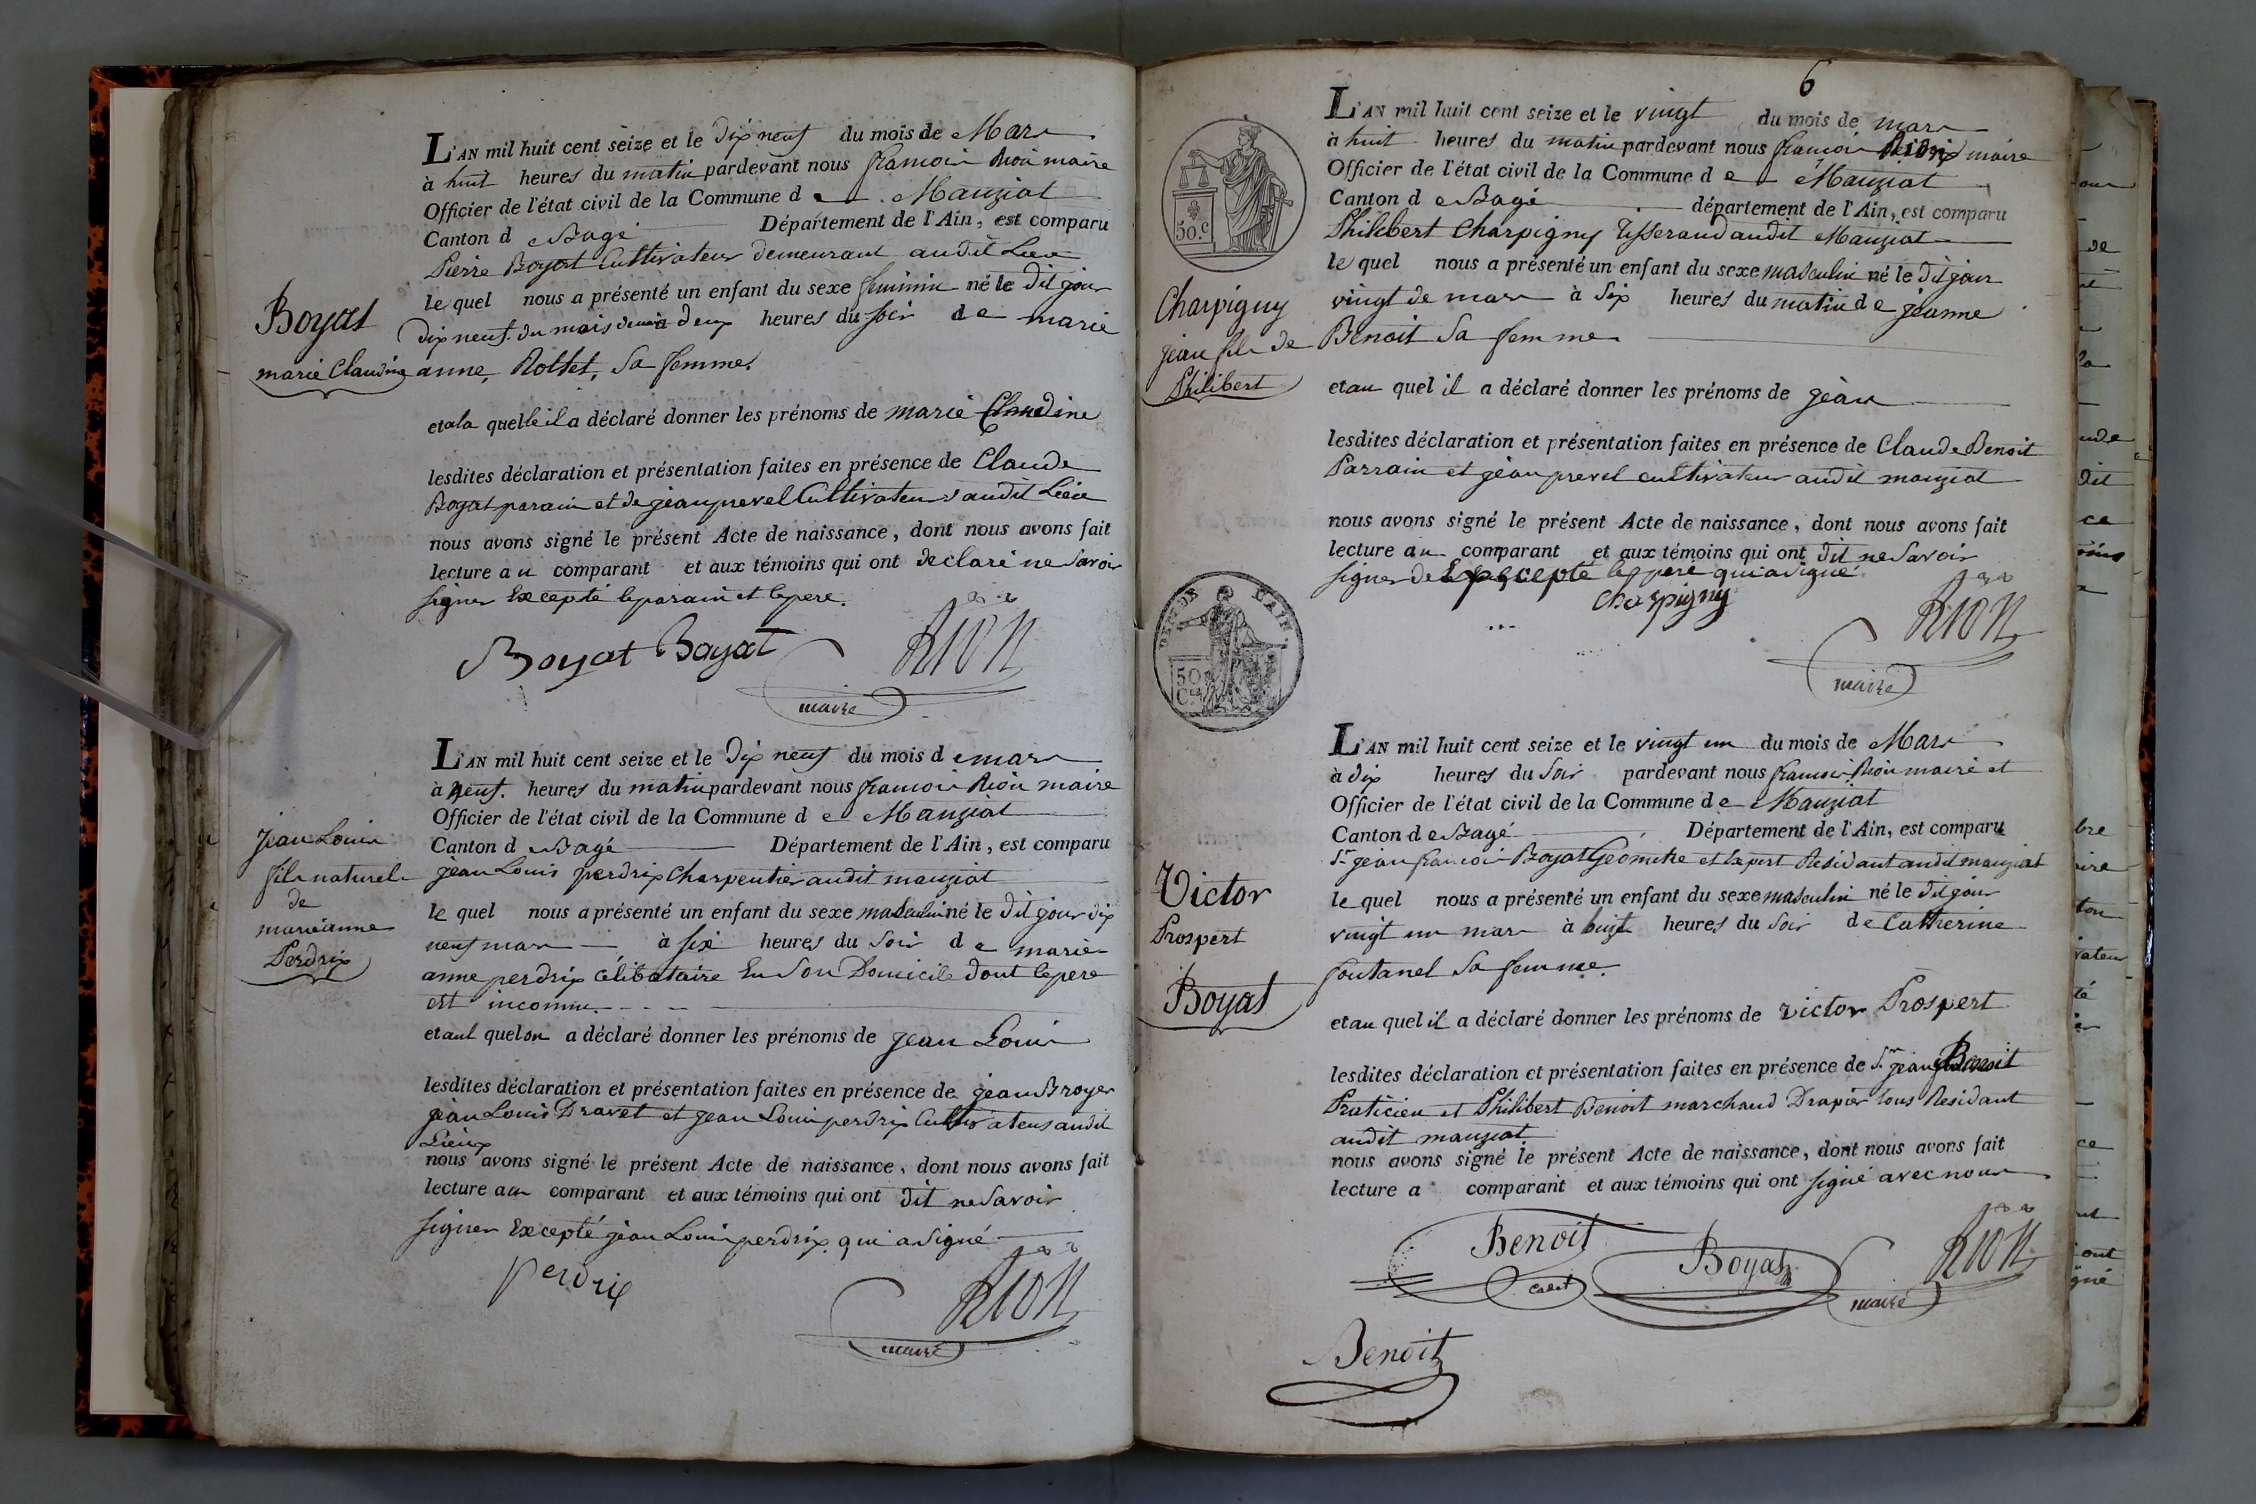 L'AN mil huit cent seize et le Dix neuf du mois de Mars
à huit heures du matin pardevant nous francois Rion maire
Officier de l'état civil de la Commune de Manziat
Canton d Bagé Département de l'Ain, est comparu
Pierre Boyat Cultivateur demeurant audit Lieu
le quel nous a présenté un enfant du sexe feminin né le Dit jour
dix neuf du mois deux heures du soir de marie
Boyat
marie Claudine
anne Rollet, Sa femme.
et a la quelle il a déclaré donner les prénoms de marie Claudine
lesdites déclaration et présentation faites en présence de Claude
Boyat parain et de jean prevel Cultivateurs audit Lieu
nous avons signé le présent Acte de naissance, dont nous avons fait
lecture au comparant et aux témoins qui ont declaré ne Savoir
signer Excepté le parain et le pere.
Boyat Boyat RION
maire
L'AN mil huit cent seize et le Dix neuf du mois de mars
à neuf heures du matin pardevant nous francois Rion maire
Officier de l'état civil de la Commune de Manziat
Canton d Bagé Département de l'Ain, est comparu
jean Louis perdrix Charpentier audit manziat
le quel nous a présenté un enfant du sexe masculin né le Dit jour dix
neuf mars à six heures du Soir de marie
anne perdrix Célibataire En Son Domicile dont le pere
est inconnu.
Jean Louis
fils naturel
de
marianne
Perdrix
et aul quel on a déclaré donner les prénoms de jean Louis
lesdites déclaration et présentation faites en présence de jean Broyer
jean Louis Dravet et jean Louis perdrix Cultivateurs audit
Lieux
nous avons signé le présent Acte de naissance, dont nous avons fait
lecture au comparant et aux témoins qui ont dit ne Savoir
signer Excepté jean Louis perdrix qui a Signé
perdrix RION
maire
6
L'AN mil huit cent seize et le vingt du mois de mars
à huit heures du matin pardevant nous francois Rion maire
Officier de l'état civil de la Commune de Manziat
Canton d Bagé département de l'Ain, est comparu
Philibert Charpigny Tisserand audit Manziat
le quel nous a présenté un enfant du sexe masculin né le Dit jour
vingt de mars à Six heures du matin de jeanne
Benoit Sa femme
30.c
Charpigny
jean fils de
Philibert
et au quel il a déclaré donner les prénoms de jean
lesdites déclaration et présentation faites en présence de Claude Benoit
Parrain et jean prevel cultivateur audit manziat
nous avons signé le présent Acte de naissance, dont nous avons fait
lecture au comparant et aux témoins qui ont dit ne Savoir
signer de Excepté le pere qui a signé
Charpigny RION
maire
DE L'AIN.
50
C.
L'AN mil huit cent seize et le vingt un du mois de Mars
à dix heures du Soir pardevant nous francois Rion maire et
Officier de l'état civil de la Commune de Manziat
Canton d Bagé Département de l'Ain, est comparu
Sr jean francois Boyat Géometre et Expert Résidant audit manziat
le quel nous a présenté un enfant du sexe masculin né le Dit jour
vingt un mars à huit heures du Soir de Catherine
fontanel Sa femme.
Victor
Prospert
Boyat
et au quel il a déclaré donner les prénoms de victor Prospert
lesdites déclaration et présentation faites en présence de Sr jean Benoit
Praticien et Philibert Benoit marchand Drapier tous Residant
audit manziat
nous avons signé le présent Acte de naissance, dont nous avons fait
lecture a comparant et aux témoins qui ont signé avec nous
Benoit Boyat RION
maire
Benoit